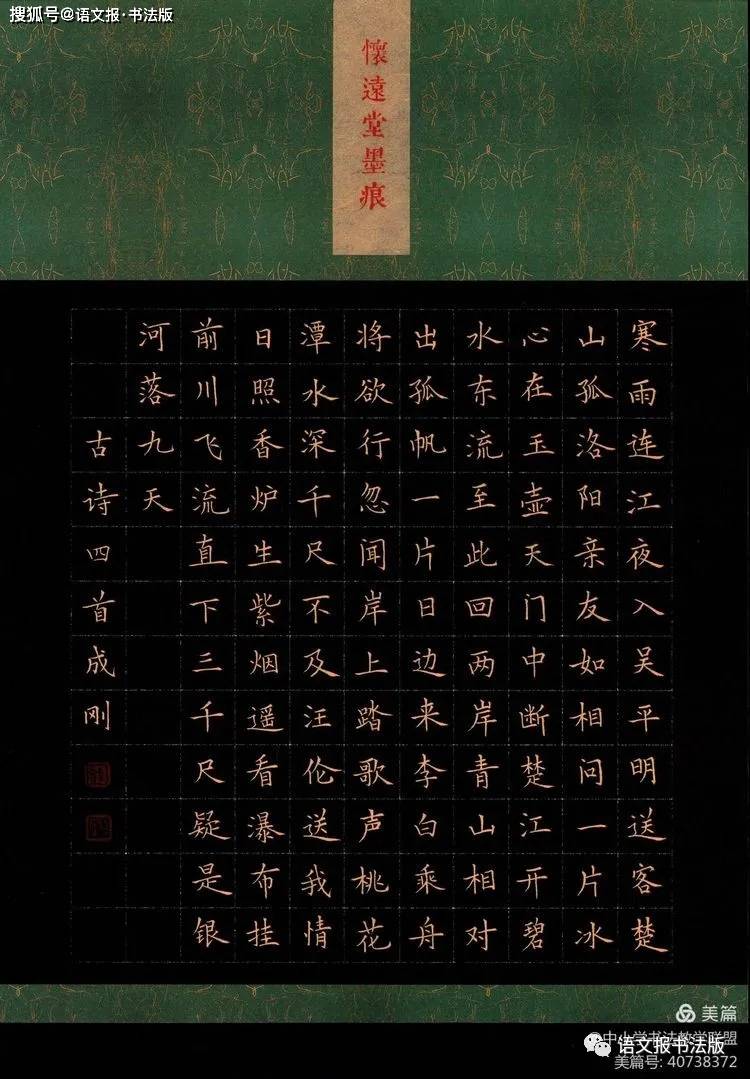 搜狐号@语文报·书法版
懷遠堂墨痕
寒雨连江夜入吴平明送客楚
山孤洛阳亲友如相问一片冰
心在玉壶天门中断楚江开碧
水东流至此回两岸青山相对
出孤帆一片日边来李白乘舟
将欲行忽闻岸上踏歌声桃花
潭水深千尺不及汪伦送我情
日照香炉生紫烟遥看瀑布挂
前川飞流直下三千尺疑是银
河落九天
古诗四首成刚
美篇
@中小学书法教学联盟
语文报书法版
美篇号: 40738372